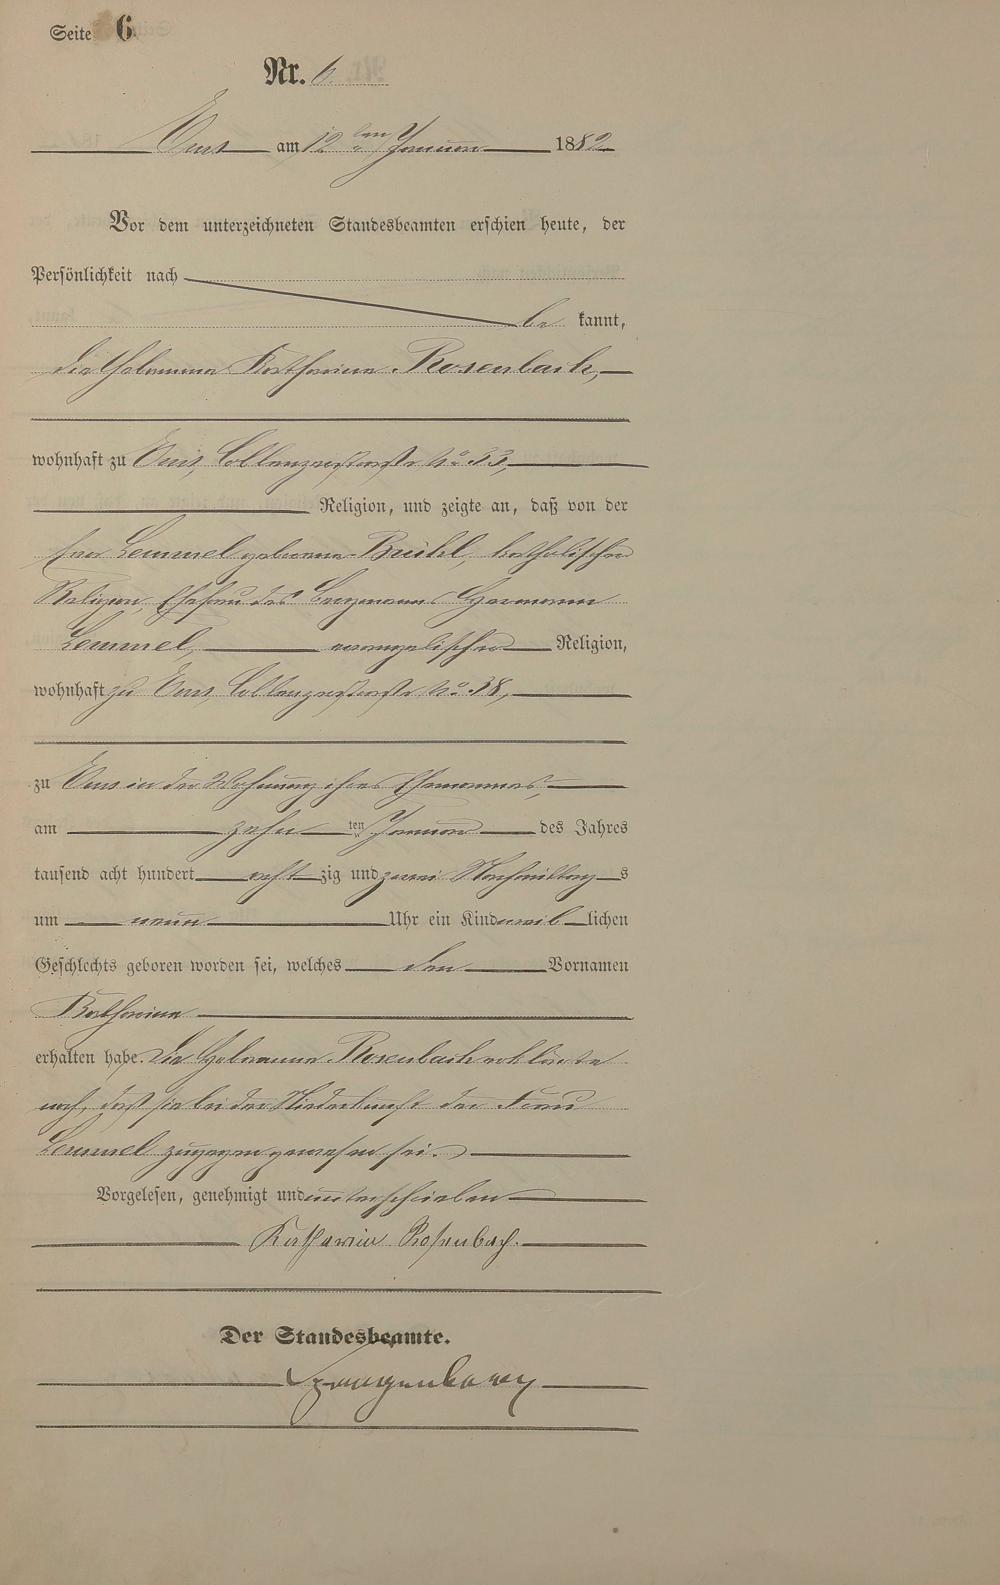 Seite 6
Nr. 6.
Ems am 12ten Januar 1882
Vor dem unterzeichneten Standesbeamten erschien heute, der
Persönlichkeit nach
be kannt,
die Hebamme Katharina Rosenbach,
wohnhaft zu Ems, Coblenzerstraße No. 33,
Religion, und zeigte an, daß von der
Frau Lemmel geborene Brühl, katholischer
Religion, Ehefrau des Bergmanns Hermann
Lemmel, evangelischer Religion,
wohnhaft zu Ems, Coblenzerstraße No. 38,
zu Ems in der Wohnung ihres Ehemannes,
am zehn ten Januar des Jahres
tausend acht hundert acht zig und zwei Nachmittag s
um neun Uhr ein Kind weib lichen
Geschlechts geboren worden sei, welches den Vornamen
Katharina
erhalten habe. Die Hebamme Rosenbach erklärte
noch, daß sie bei der Niederkunft der Frau
Lemmel zugegen gewesen sei.
Vorgelesen, genehmigt und unterschrieben
Katharina Rosenbach.
Der Standesbeamte.